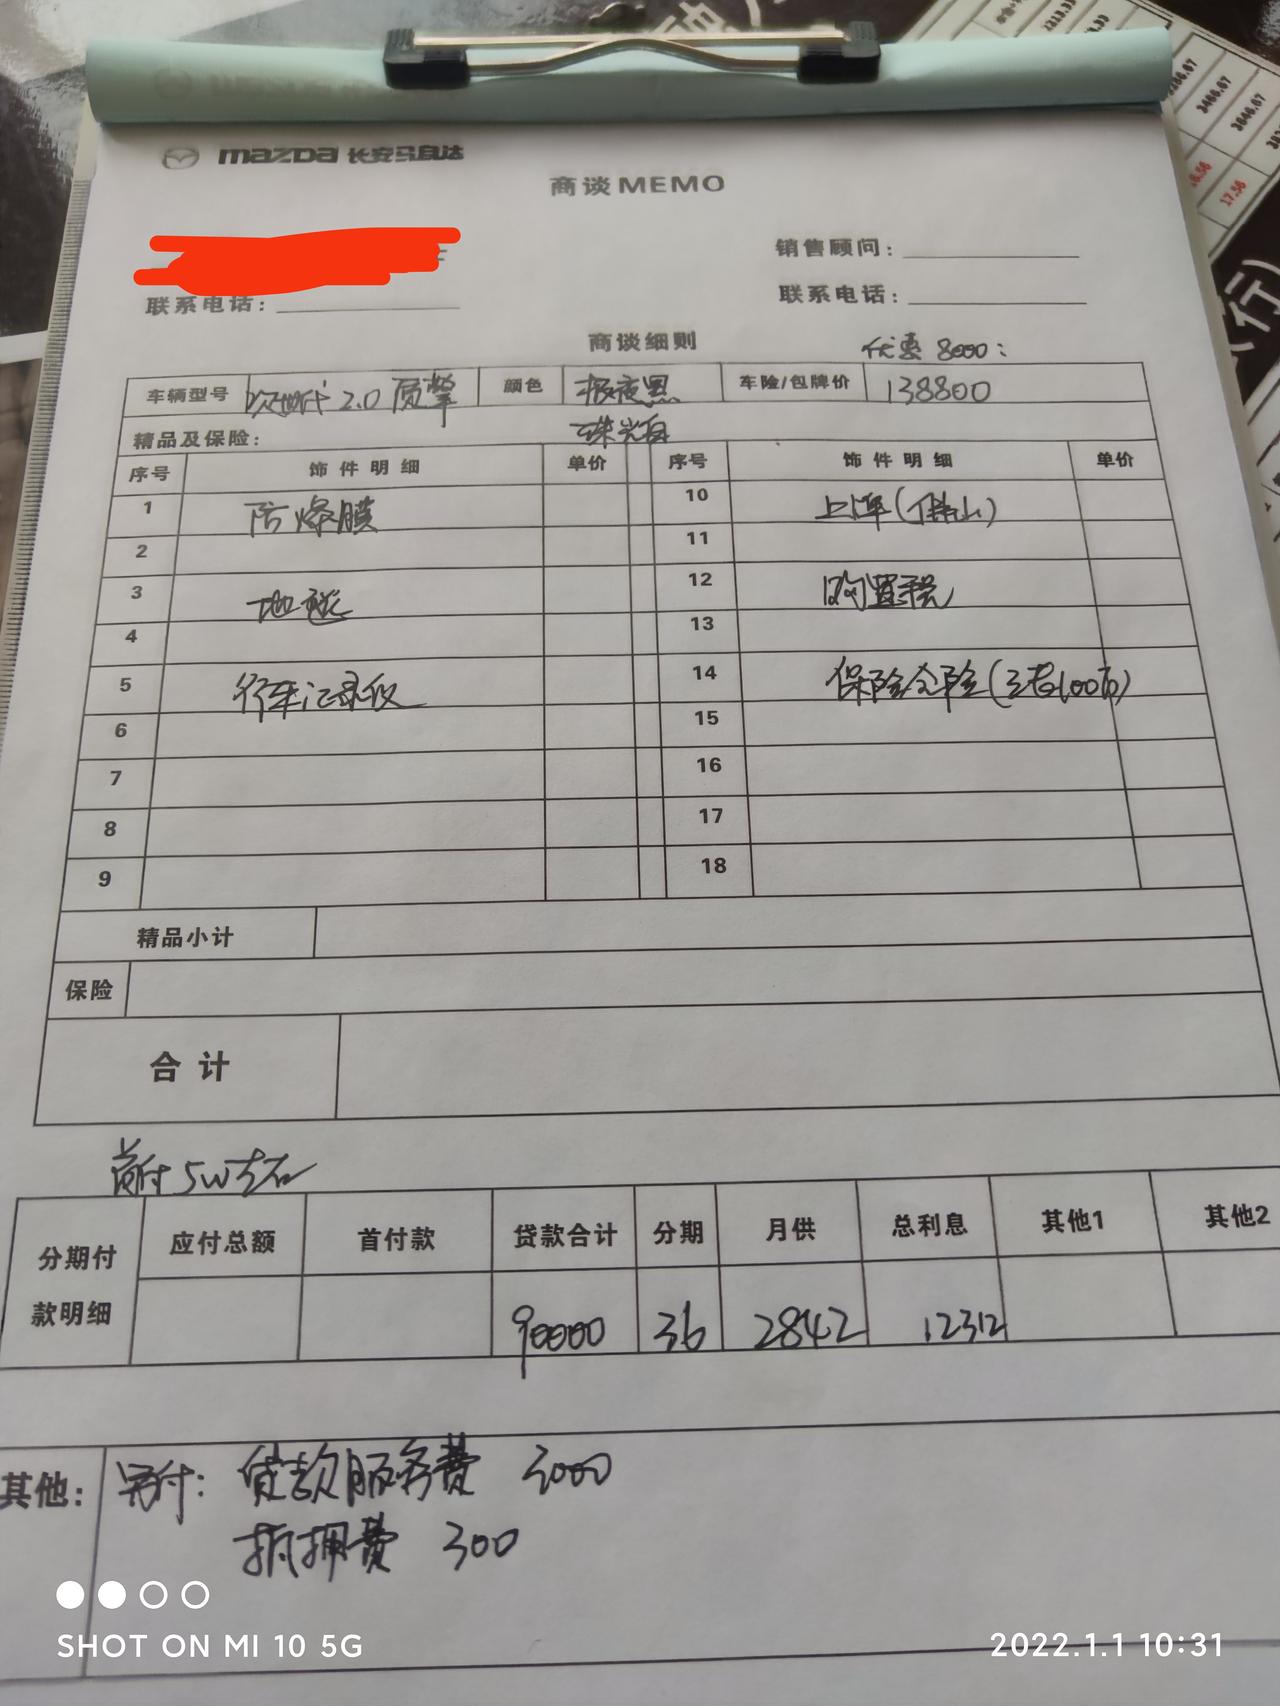 mazda 长安马自达
商谈MEMO
销售顾问:
联系电话:
联系电话:
商谈细则
优惠 8000:
车辆型号 次世代 2.0 质擎 颜色 极夜黑 车险/包牌价 138800
珠光白
精品及保险:
序号 饰件明细 单价 序号 饰件明细 单价
1 防爆膜 10 上牌(佛山)
2 11
3 地毯 12 购置税
4 13
5 行车记录仪 14 保险全险(三者100万)
6 15
7 16
8 17
9 18
精品小计
保险
合计
首付 5W左右
分期付款明细 应付总额 首付款 贷款合计 分期 月供 总利息 其他1 其他2
90000 36 2842 12312
其他: 另付: 贷款服务费 3000
抵押费 300
SHOT ON MI 10 5G
2022.1.1 10:31